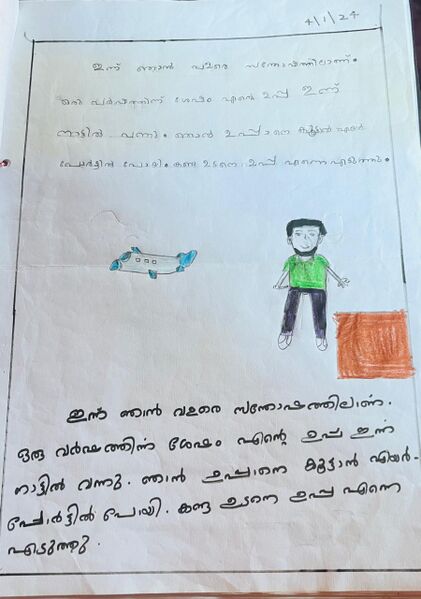 4/1/24
ഇന്ന് ഞാൻ വളരെ സന്തോഷത്തിലാണ്.
ഒരു വർഷത്തിന് ശേഷം എന്റെ ഉപ്പ ഇന്ന്
നാട്ടിൽ വന്നു. ഞാൻ ഉപ്പാനെ കൂട്ടാൻ എയർ
പോർട്ടിൽ പോയി. കണ്ട ഉടനെ ഉപ്പ എന്നെ എടുത്തു.
ഇന്ന് ഞാൻ വളരെ സന്തോഷത്തിലാണ്.
ഒരു വർഷത്തിന് ശേഷം എന്റെ ഉപ്പ ഇന്ന്
നാട്ടിൽ വന്നു. ഞാൻ ഉപ്പാനെ കൂട്ടാൻ എയർ-
പ്പോർട്ടിൽ പോയി. കണ്ട ഉടനെ ഉപ്പ എന്നെ
എടുത്തു.